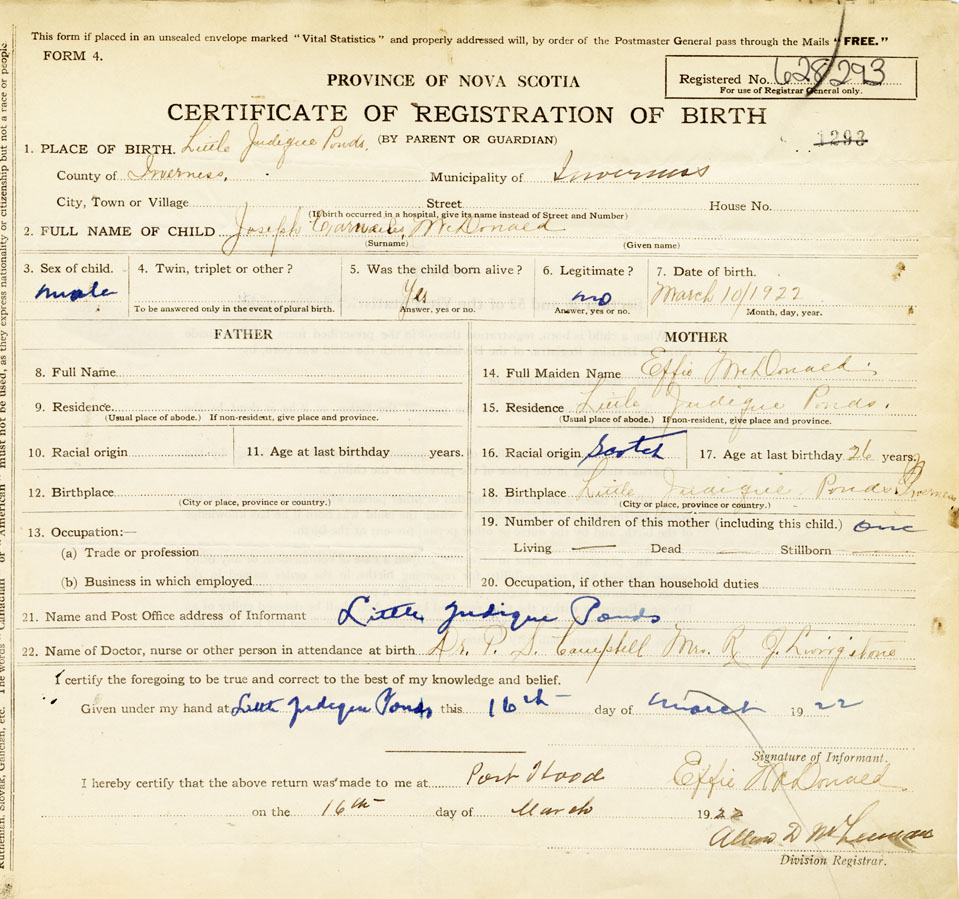 This form if placed in an unsealed envelope marked "Vital Statistics" and properly addressed will, by order of the Postmaster General pass through the Mails "FREE."
FORM 4.
PROVINCE OF NOVA SCOTIA
Registered No. 628293
For use of Registrar General only.
CERTIFICATE OF REGISTRATION OF BIRTH
(BY PARENT OR GUARDIAN)
1293
1. PLACE OF BIRTH. Little Judique Ponds.
County of Inverness. Municipality of Inverness
City, Town or Village Street House No.
(If birth occurred in a hospital, give its name instead of Street and Number)
2. FULL NAME OF CHILD Joseph McDonald
(Surname) (Given name)
3. Sex of child. 4. Twin, triplet or other? 5. Was the child born alive? 6. Legitimate? 7. Date of birth.
male Yes no March 10/1922
To be answered only in the event of plural birth. Answer, yes or no. Answer, yes or no. Month, day, year.
FATHER
8. Full Name
9. Residence.
(Usual place of abode.) If non-resident, give place and province.
10. Racial origin 11. Age at last birthday years.
12. Birthplace
(City or place, province or country.)
13. Occupation:—
(a) Trade or profession
(b) Business in which employed
MOTHER
14. Full Maiden Name Effie McDonald
15. Residence Little Judique Ponds.
(Usual place of abode.) If non-resident, give place and province.
16. Racial origin Scotch 17. Age at last birthday 26 years.
18. Birthplace Little Judique Ponds Inverness
(City or place, province or country.)
19. Number of children of this mother (including this child.) one
Living — Dead — Stillborn —
20. Occupation, if other than household duties
21. Name and Post Office address of Informant Little Judique Ponds
22. Name of Doctor, nurse or other person in attendance at birth Dr. P. S. Campbell Mrs. R J. Livingstone
I certify the foregoing to be true and correct to the best of my knowledge and belief.
Given under my hand at Little Judique Ponds this 16th day of March 1922
Signature of Informant.
I hereby certify that the above return was made to me at Port Hood Effie McDonald
on the 16th day of March 1922
Division Registrar.
Ruthenian, Slovak, Galician, etc. The words "Canadian" or "American" must not be used, as they express nationality or citizenship but not a race or people